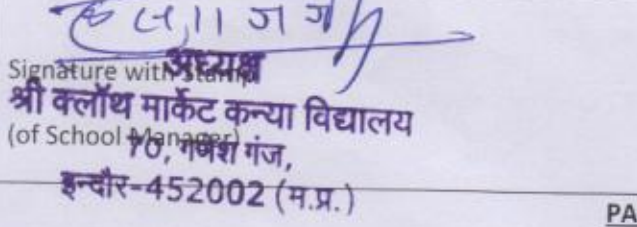 Signature with Stamp
अध्यक्ष
श्री क्लॉथ मार्केट कन्या विद्यालय
(of School Manager)
70, गणेश गंज,
इन्दौर-452002 (म.प्र.)
PA